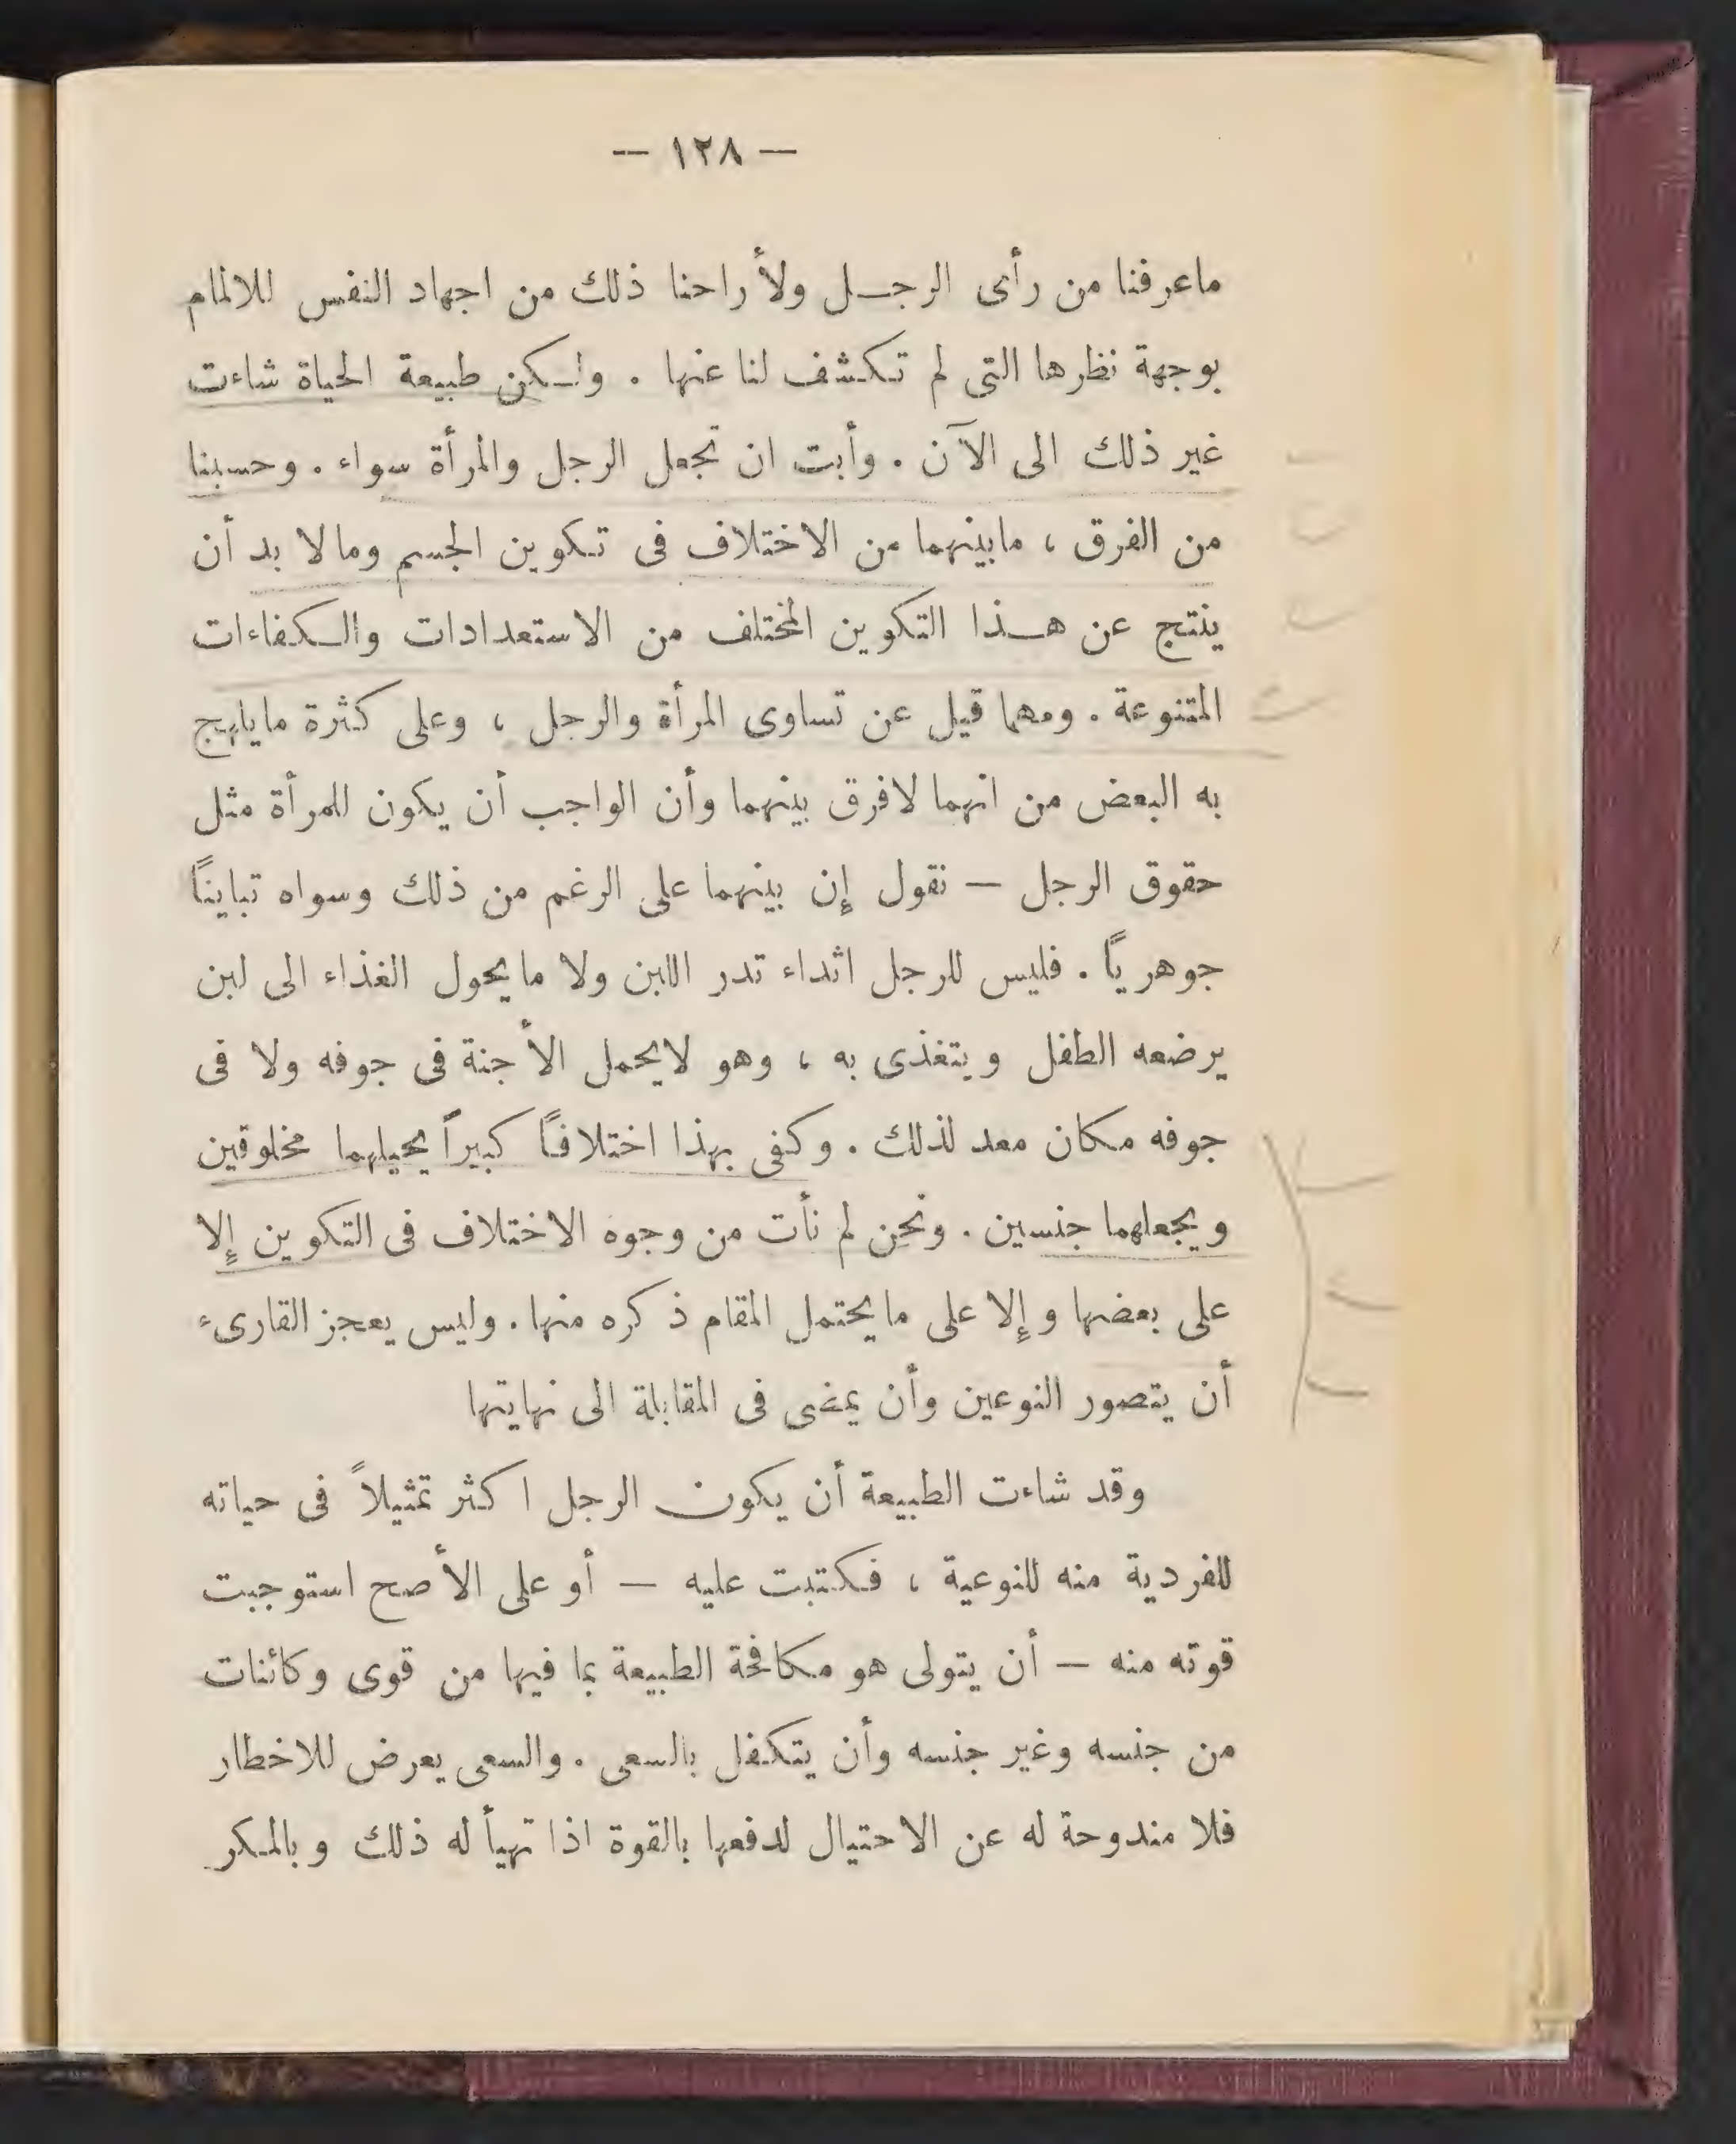 — ١٢٨ —
ماعرفنا من رأى الرجل ولأراحنا ذلك من اجهاد النفس للالمام
بوجهة نظرها التى لم تكشف لنا عنها . ولكن طبيعة الحياة شاءت
غير ذلك الى الآن . وأبت ان تجعل الرجل والمرأة سواء . وحسبنا
من الفرق ، مابينهما من الاختلاف فى تكوين الجسم ومالا بد أن
ينتج عن هذا التكوين المختلف من الاستعدادات والكفاءات
المتنوعة . ومهما قيل عن تساوى المرأة والرجل ، وعلى كثرة مايلهج
به البعض من انهما لافرق بينهما وأن الواجب أن يكون للمرأة مثل
حقوق الرجل — نقول إن بينهما على الرغم من ذلك وسواه تباينًا
جوهريًا . فليس للرجل اثداء تدر اللبن ولا مايحول الغذاء الى لبن
يرضعه الطفل ويتغذى به ، وهو لايحمل الأجنة فى جوفه ولا فى
جوفه مكان معد لذلك . وكفى بهذا اختلافًا كبيراً يحيلهما مخلوقين
ويجعلهما جنسين . ونحن لم نأت من وجوه الاختلاف فى التكوين إلا
على بعضها وإلا على مايحتمل المقام ذكره منها . وليس يعجز القارىء
أن يتصور النوعين وأن يمضى فى المقابلة الى نهايتها
وقد شاءت الطبيعة أن يكون الرجل اكثر تمثيلاً فى حياته
للفردية منه للنوعية ، فكتبت عليه — أو على الأصح استوجبت
قوته منه — أن يتولى هو مكافحة الطبيعة بما فيها من قوى وكائنات
من جنسه وغير جنسه وأن يتكفل بالسعى . والسعى يعرض للاخطار
فلا مندوحة له عن الاحتيال لدفعها بالقوة اذا تهيأ له ذلك وبالمكر